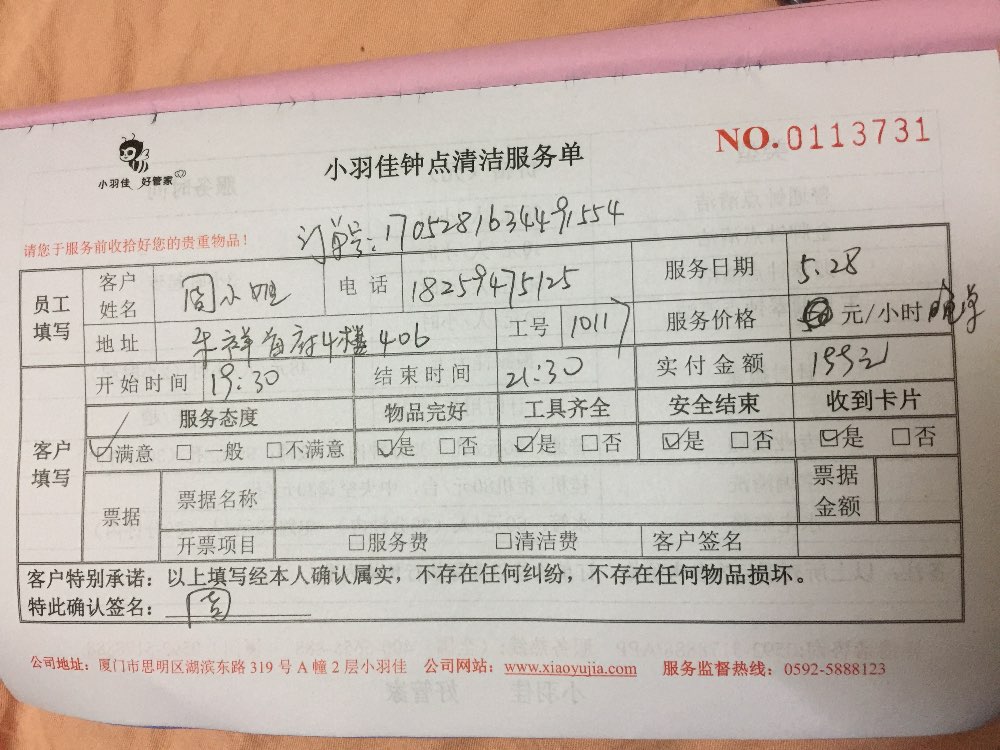 小羽佳 好管家
小羽佳钟点清洁服务单
NO.0113731
订单号:1705281634491554
请您于服务前收拾好您的贵重物品!
员工填写 客户姓名 周小姐 电话 18259475125 服务日期 5.28
地址 首府4楼406 工号 1011 服务价格 元/小时
开始时间 19:30 结束时间 21:30 实付金额
客户填写 服务态度 物品完好 工具齐全 安全结束 收到卡片
☑满意 □一般 □不满意 ☑是 □否 ☑是 □否 ☑是 □否 ☑是 □否
票据 票据名称 票据金额
开票项目 □服务费 □清洁费 客户签名
客户特别承诺:以上填写经本人确认属实,不存在任何纠纷,不存在任何物品损坏。
特此确认签名:
公司地址:厦门市思明区湖滨东路 319 号 A 幢 2 层小羽佳 公司网站:www.xiaoyujia.com 服务监督热线:0592-5888123